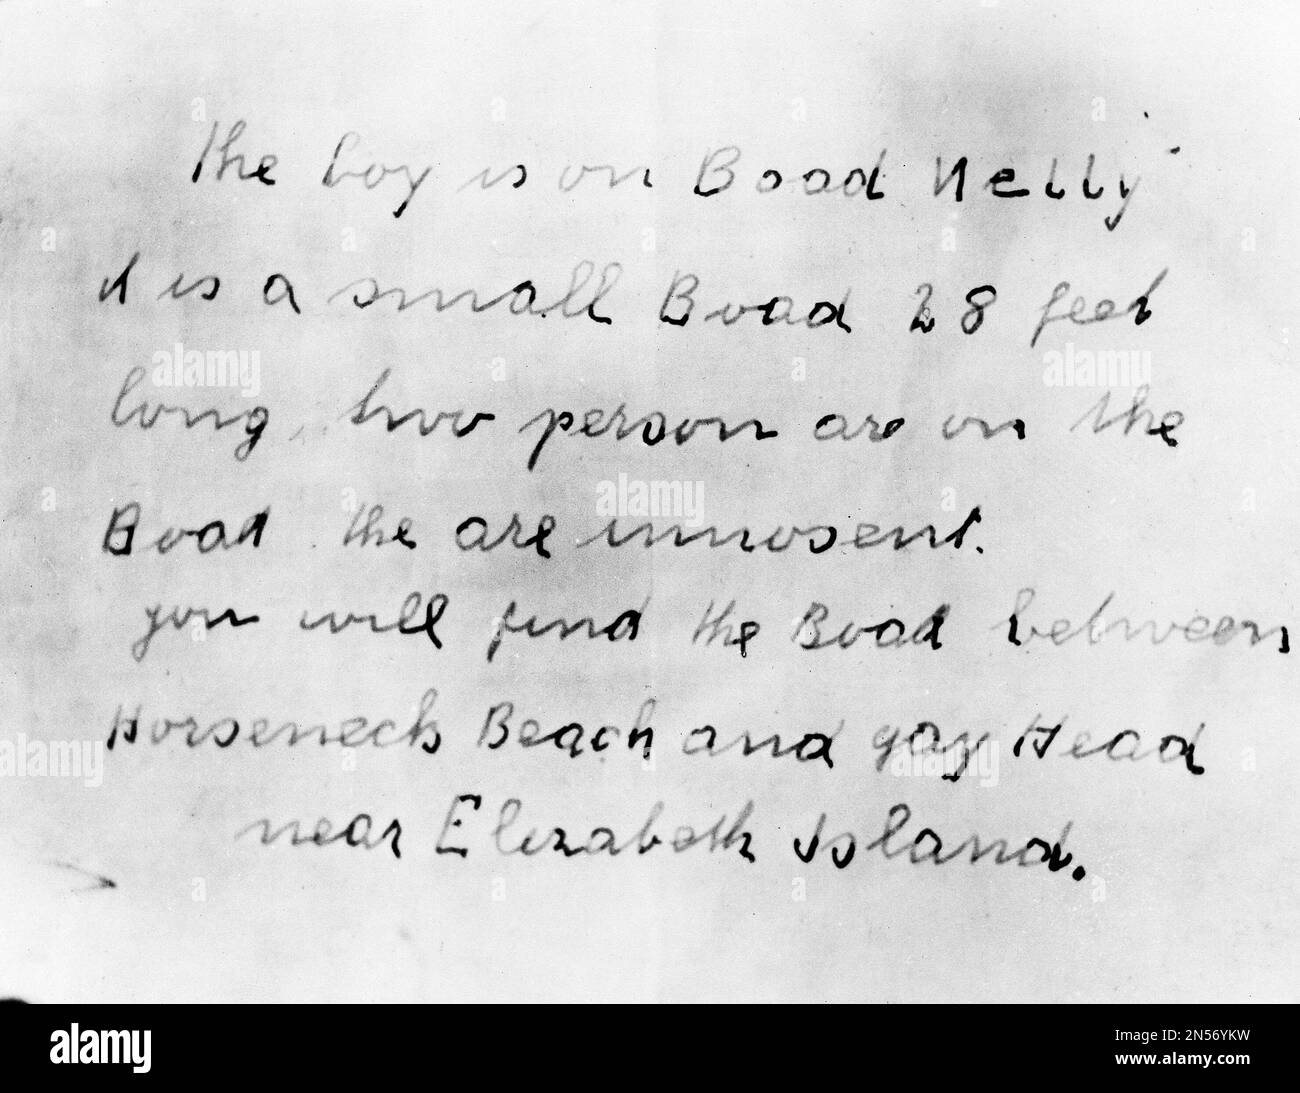 the boy is on Boad Nelly
it is a small Boad 28 feet
long, two person are on the
Boad the are innosent.
you will find the Boad between
Horseneck Beach and gay Head
near Elizabeth Island.
alamy
Image ID: 2N56YKW
www.alamy.com